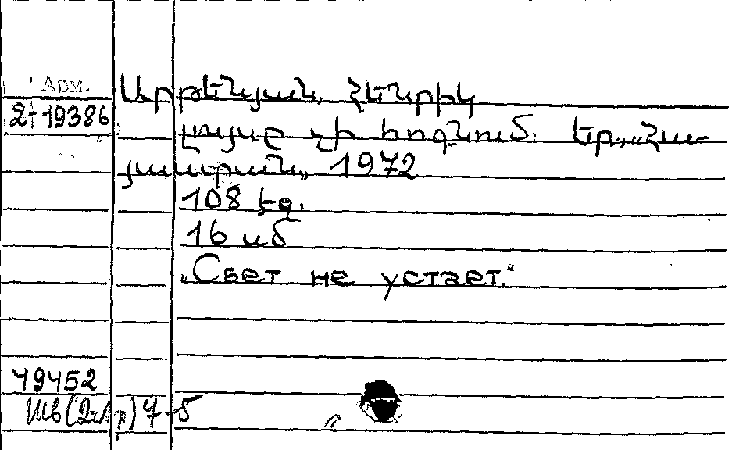 Арм.
2-19386
Արթենյան, Հենրիկ
Լույսը չի հոգնում: Եր., „Հա-
յաստան„ 1972
108 էջ.
16 սմ
„Свет не устает."
79452